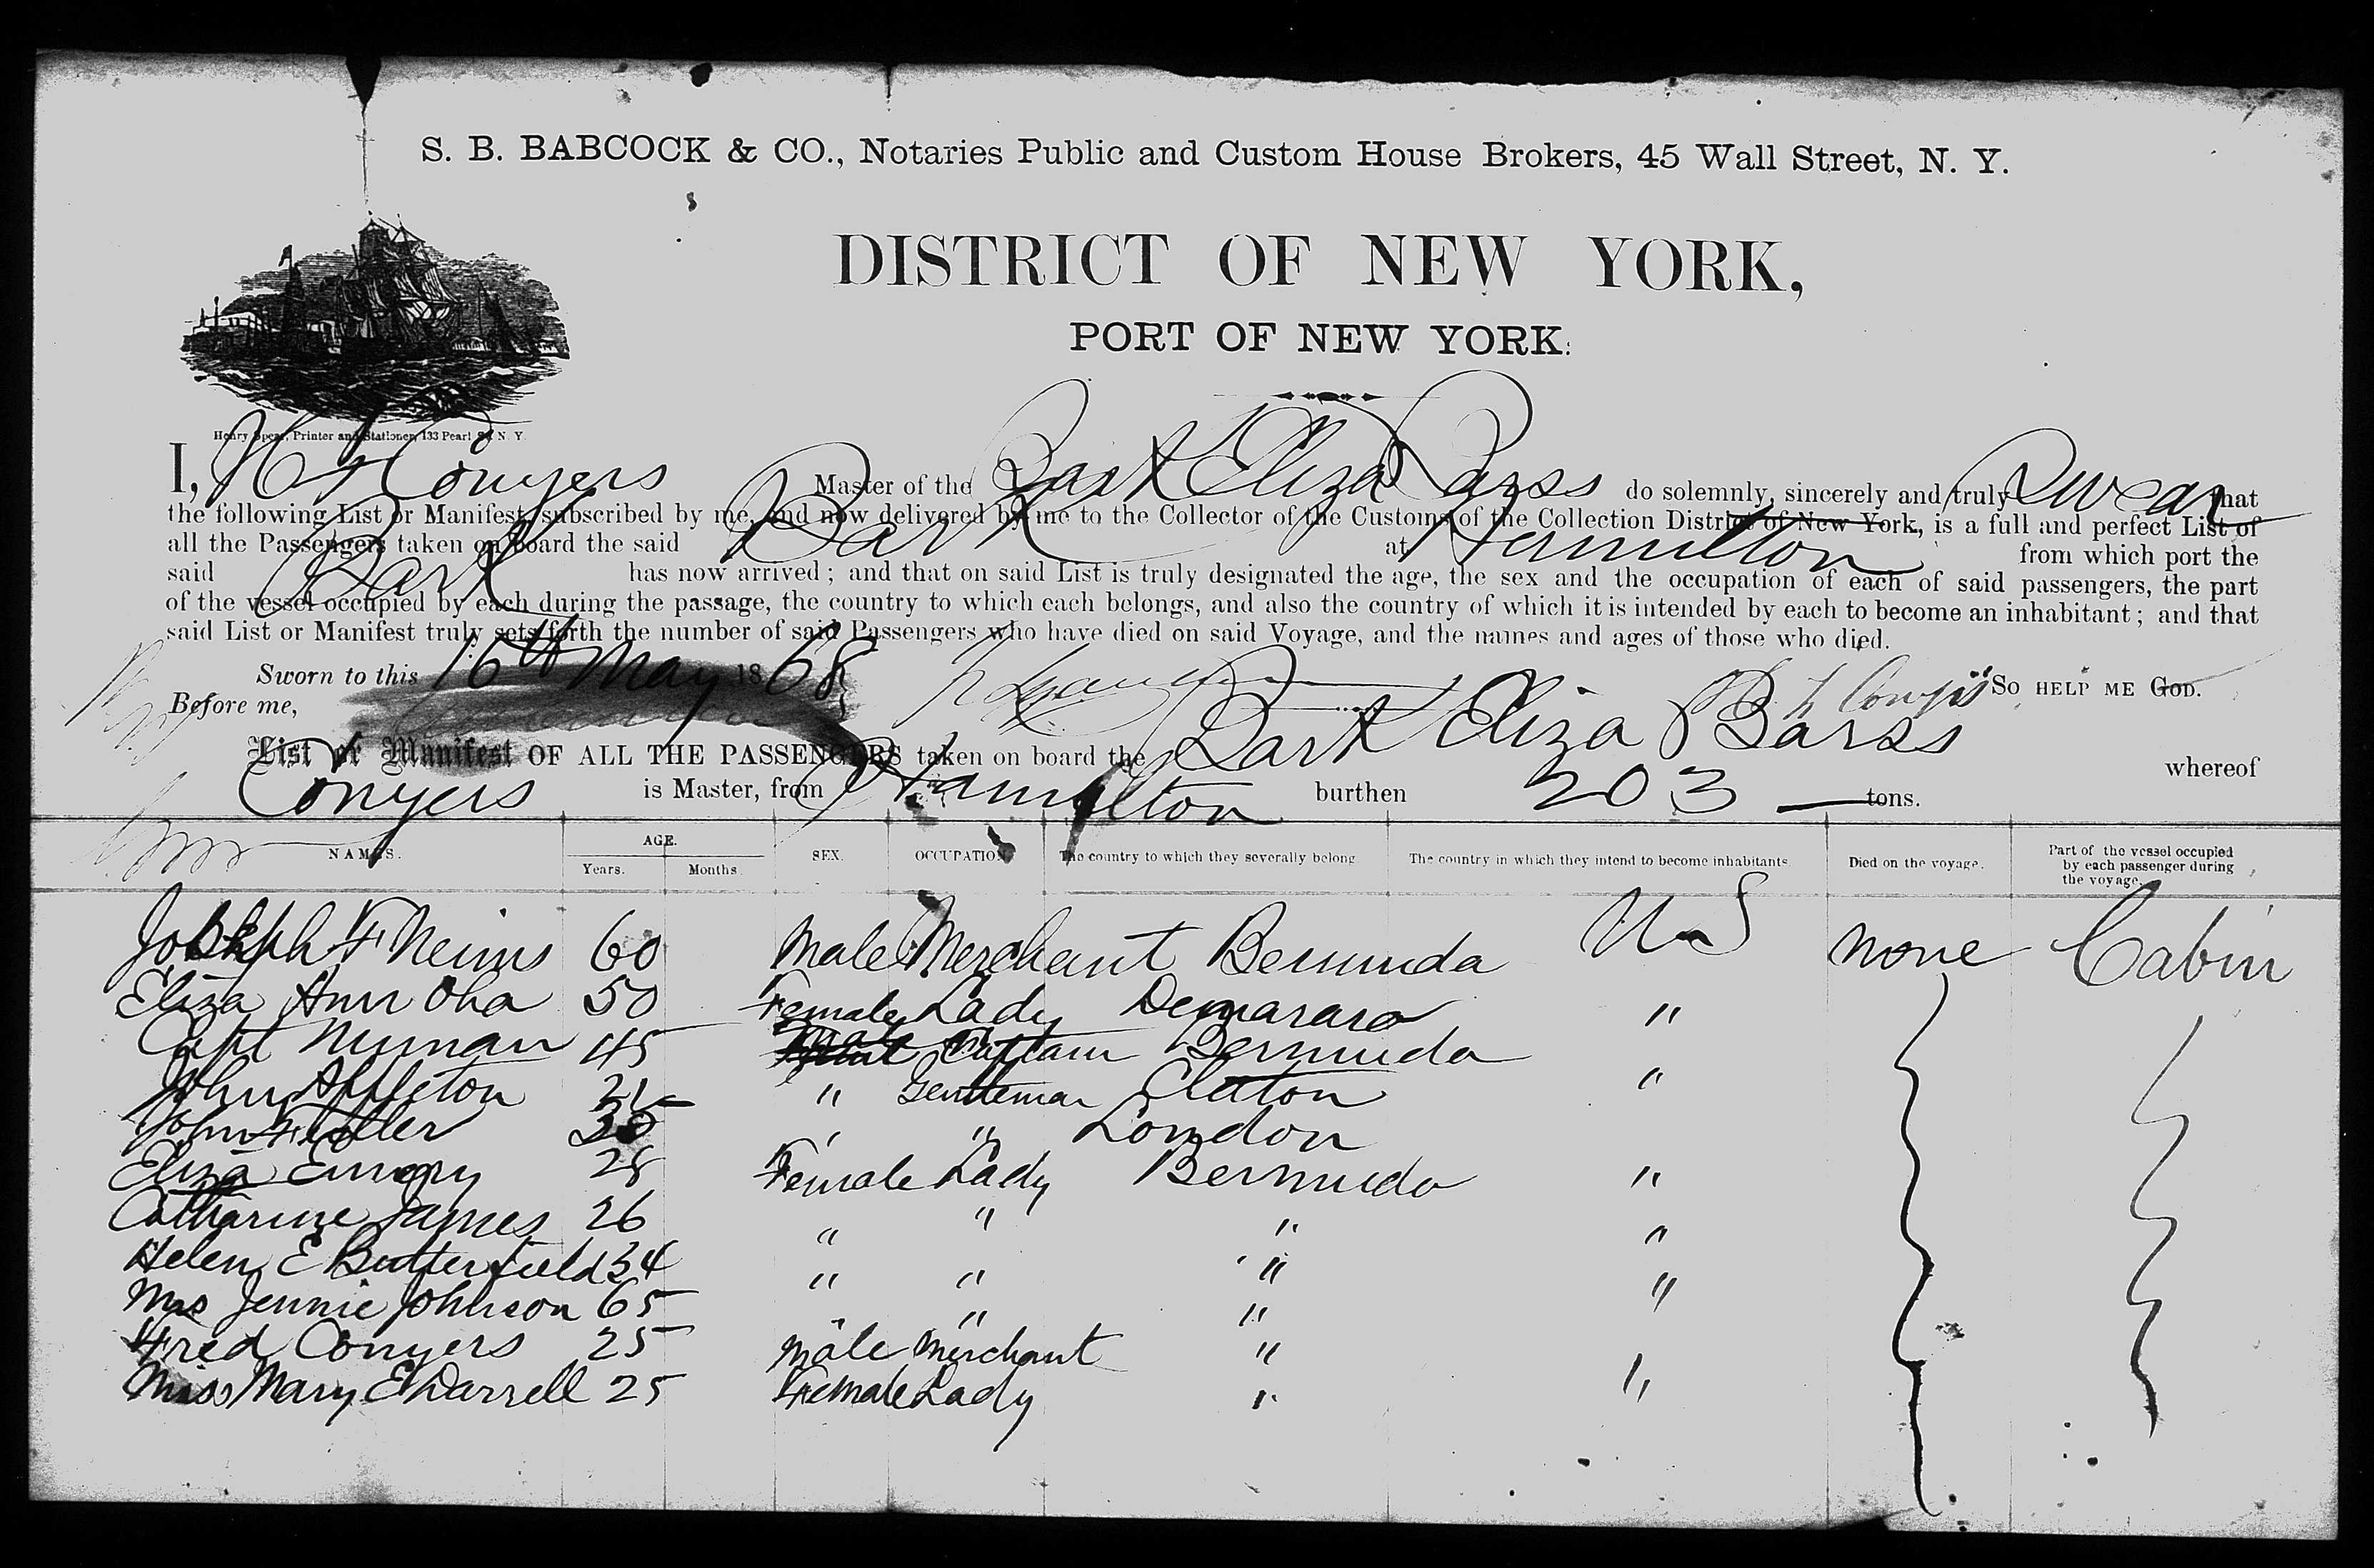 S. B. BABCOCK & CO., Notaries Public and Custom House Brokers, 45 Wall Street, N. Y.
DISTRICT OF NEW YORK,
PORT OF NEW YORK.
Henry Spear, Printer and Stationer, 133 Pearl St. N. Y.
I, Conyers Master of the Bark Eliza Barss do solemnly, sincerely and truly Swear that
the following List or Manifest, subscribed by me, and now delivered by me to the Collector of the Customs of the Collection District of New York, is a full and perfect List of
all the Passengers taken on board the said Bark at Hamilton from which port the
said Bark has now arrived; and that on said List is truly designated the age, the sex and the occupation of each of said passengers, the part
of the vessel occupied by each during the passage, the country to which each belongs, and also the country of which it is intended by each to become an inhabitant; and that
said List or Manifest truly sets forth the number of said Passengers who have died on said Voyage, and the names and ages of those who died.
Sworn to this 16th May 1868 So HELP ME GOD.
Before me,
List or Manifest OF ALL THE PASSENGERS taken on board the Bark Eliza Barss whereof
Conyers is Master, from Hamilton burthen 203 tons.
NAMES. AGE. Years. Months. SEX. OCCUPATION. The country to which they severally belong. The country in which they intend to become inhabitants. Died on the voyage. Part of the vessel occupied by each passenger during the voyage.
Joseph F 60 Male Merchant Bermuda U S none Cabin
Eliza Ann 50 Female Lady Demararo "
Capt Nyman 45 Male Captain Bermuda
John Appleton " Gentleman "
John 30 " " London
Eliza Emory 28 Female Lady Bermuda "
Catharine James 26 " " " "
Helen E Butterfield 34 " " " "
Mrs Jennie Johnson 65 " " "
Fred Conyers 25 Male Merchant "
Miss Mary E Darrell 25 Female Lady " "